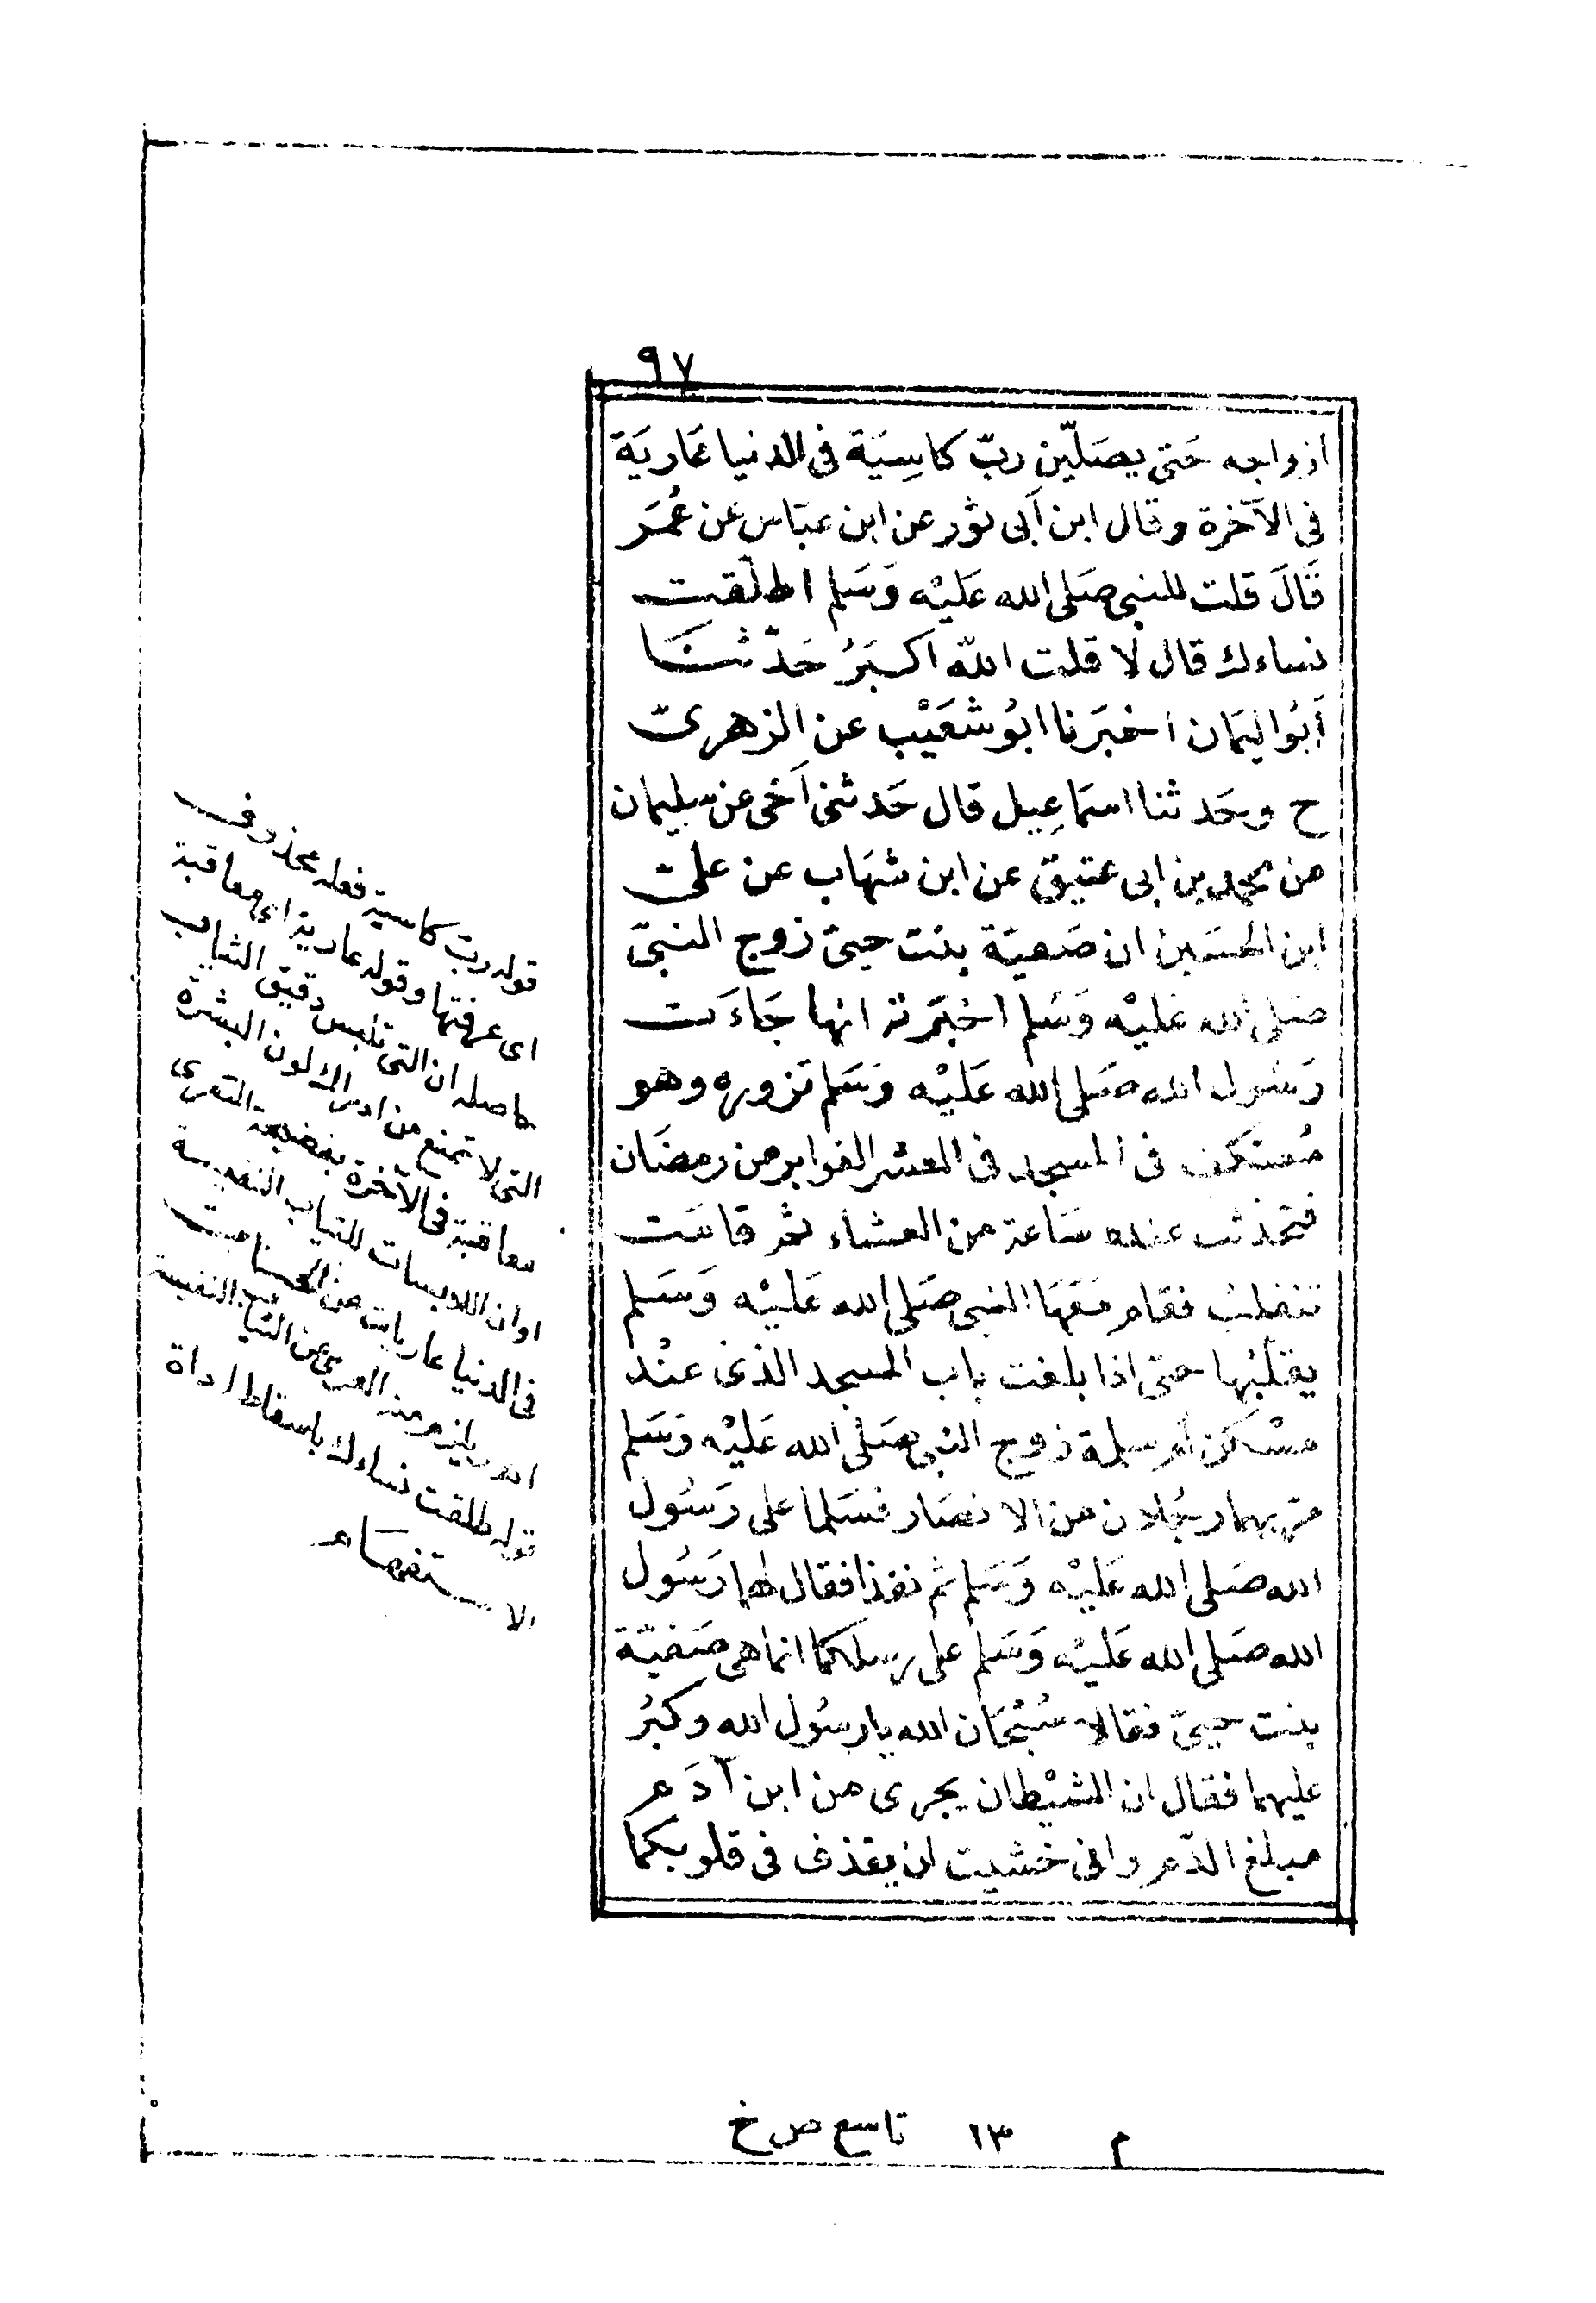 ٩٧
ازواجه حَتى يصَلّين ربّ كاسِيَة فى الدنيا عَاريَة
فى الآخرة وقال ابن أبى ثور عن ابن عبّاس عن عُمَر
قَالَ قلت للنبى صَلى الله عَليْه وَسَلم اطلّقت
نساءك قال لا قلت اللّه اكبَرُ حَدّثنَا
أبُو اليمَان اخبَرنا ابُو شعَيْب عن الزهرىّ
ح وحَدثنا اسمَاعِيل قال حَدثنى أخى عن سليمان
عن محمد بن ابى عتيق عن ابن شهَاب عن علىّ
ابن الحسَين ان صَفيّة بنت حيىّ زوج النبىّ
صَلى الله عَليْه وَسَلم اخبَرته انها جَاءَت
رَسُول الله صَلى الله عَليْه وَسَلم تزوره وهو
مُعتكف فى المسجد فى العشر الغوابر من رمضَان
فتحَدثت عنده سَاعة من العشاء ثم قامَت
تنقلبُ فقام مَعَهَا النبى صَلى الله عَليْه وَسَلم
يقلبُها حتى اذا بلغت باب المسجد الذى عنْد
مسْكن أم سلمة زوج النبى صَلى الله عَليْه وَسَلم
مرّ بهما رجُلان من الانصَار فسَلما على رَسُول
الله صَلى الله عَليْه وَسَلم ثم نفذا فقال لهما رَسُول
الله صَلى الله عَليْه وَسَلم على رسلكما انما هى صَفيّة
بنت حيىّ فقالا سُبْحَان الله يا رسُول الله وكبُر
عليهما فقال ان الشيْطان يجرى من ابن آدَم
مبلغ الدّم وانى خشيت ان يقذف فى قلوبكما
قوله رب كاسية فعله محذوف
اى عرفتها وقوله عارية اى معاقبة
حاصله ان التى تلبس رقيق الثياب
التى لا تمنع من ادراك لون البشرة
معاقبة فى الآخرة بفضيحة التعرى
او ان اللابسات للثياب النفيسة
فى الدنيا عاريات من الحسنات
العرى عن الثياب النفيسة
قوله طلقت نساءك باسقاط اداة
الاستفهام
م ١٣ تاسع ص خ